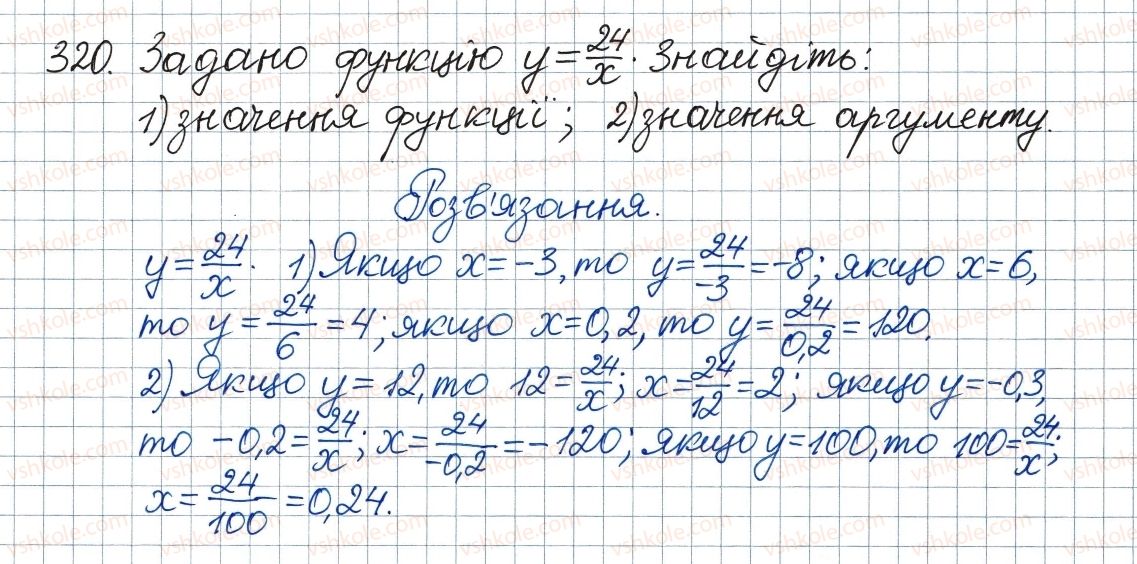 320. Задано функцію y = 24/x. Знайдіть:
1) значення функції; 2) значення аргументу.
Розв'язання.
y = 24/x. 1) Якщо x = -3, то y = 24/-3 = -8; якщо x = 6,
то y = 24/6 = 4; якщо x = 0,2, то y = 24/0,2 = 120.
2) Якщо y = 12, то 12 = 24/x; x = 24/12 = 2; якщо y = -0,3,
то -0,2 = 24/x; x = 24/-0,2 = -120; якщо y = 100, то 100 = 24/x;
x = 24/100 = 0,24.